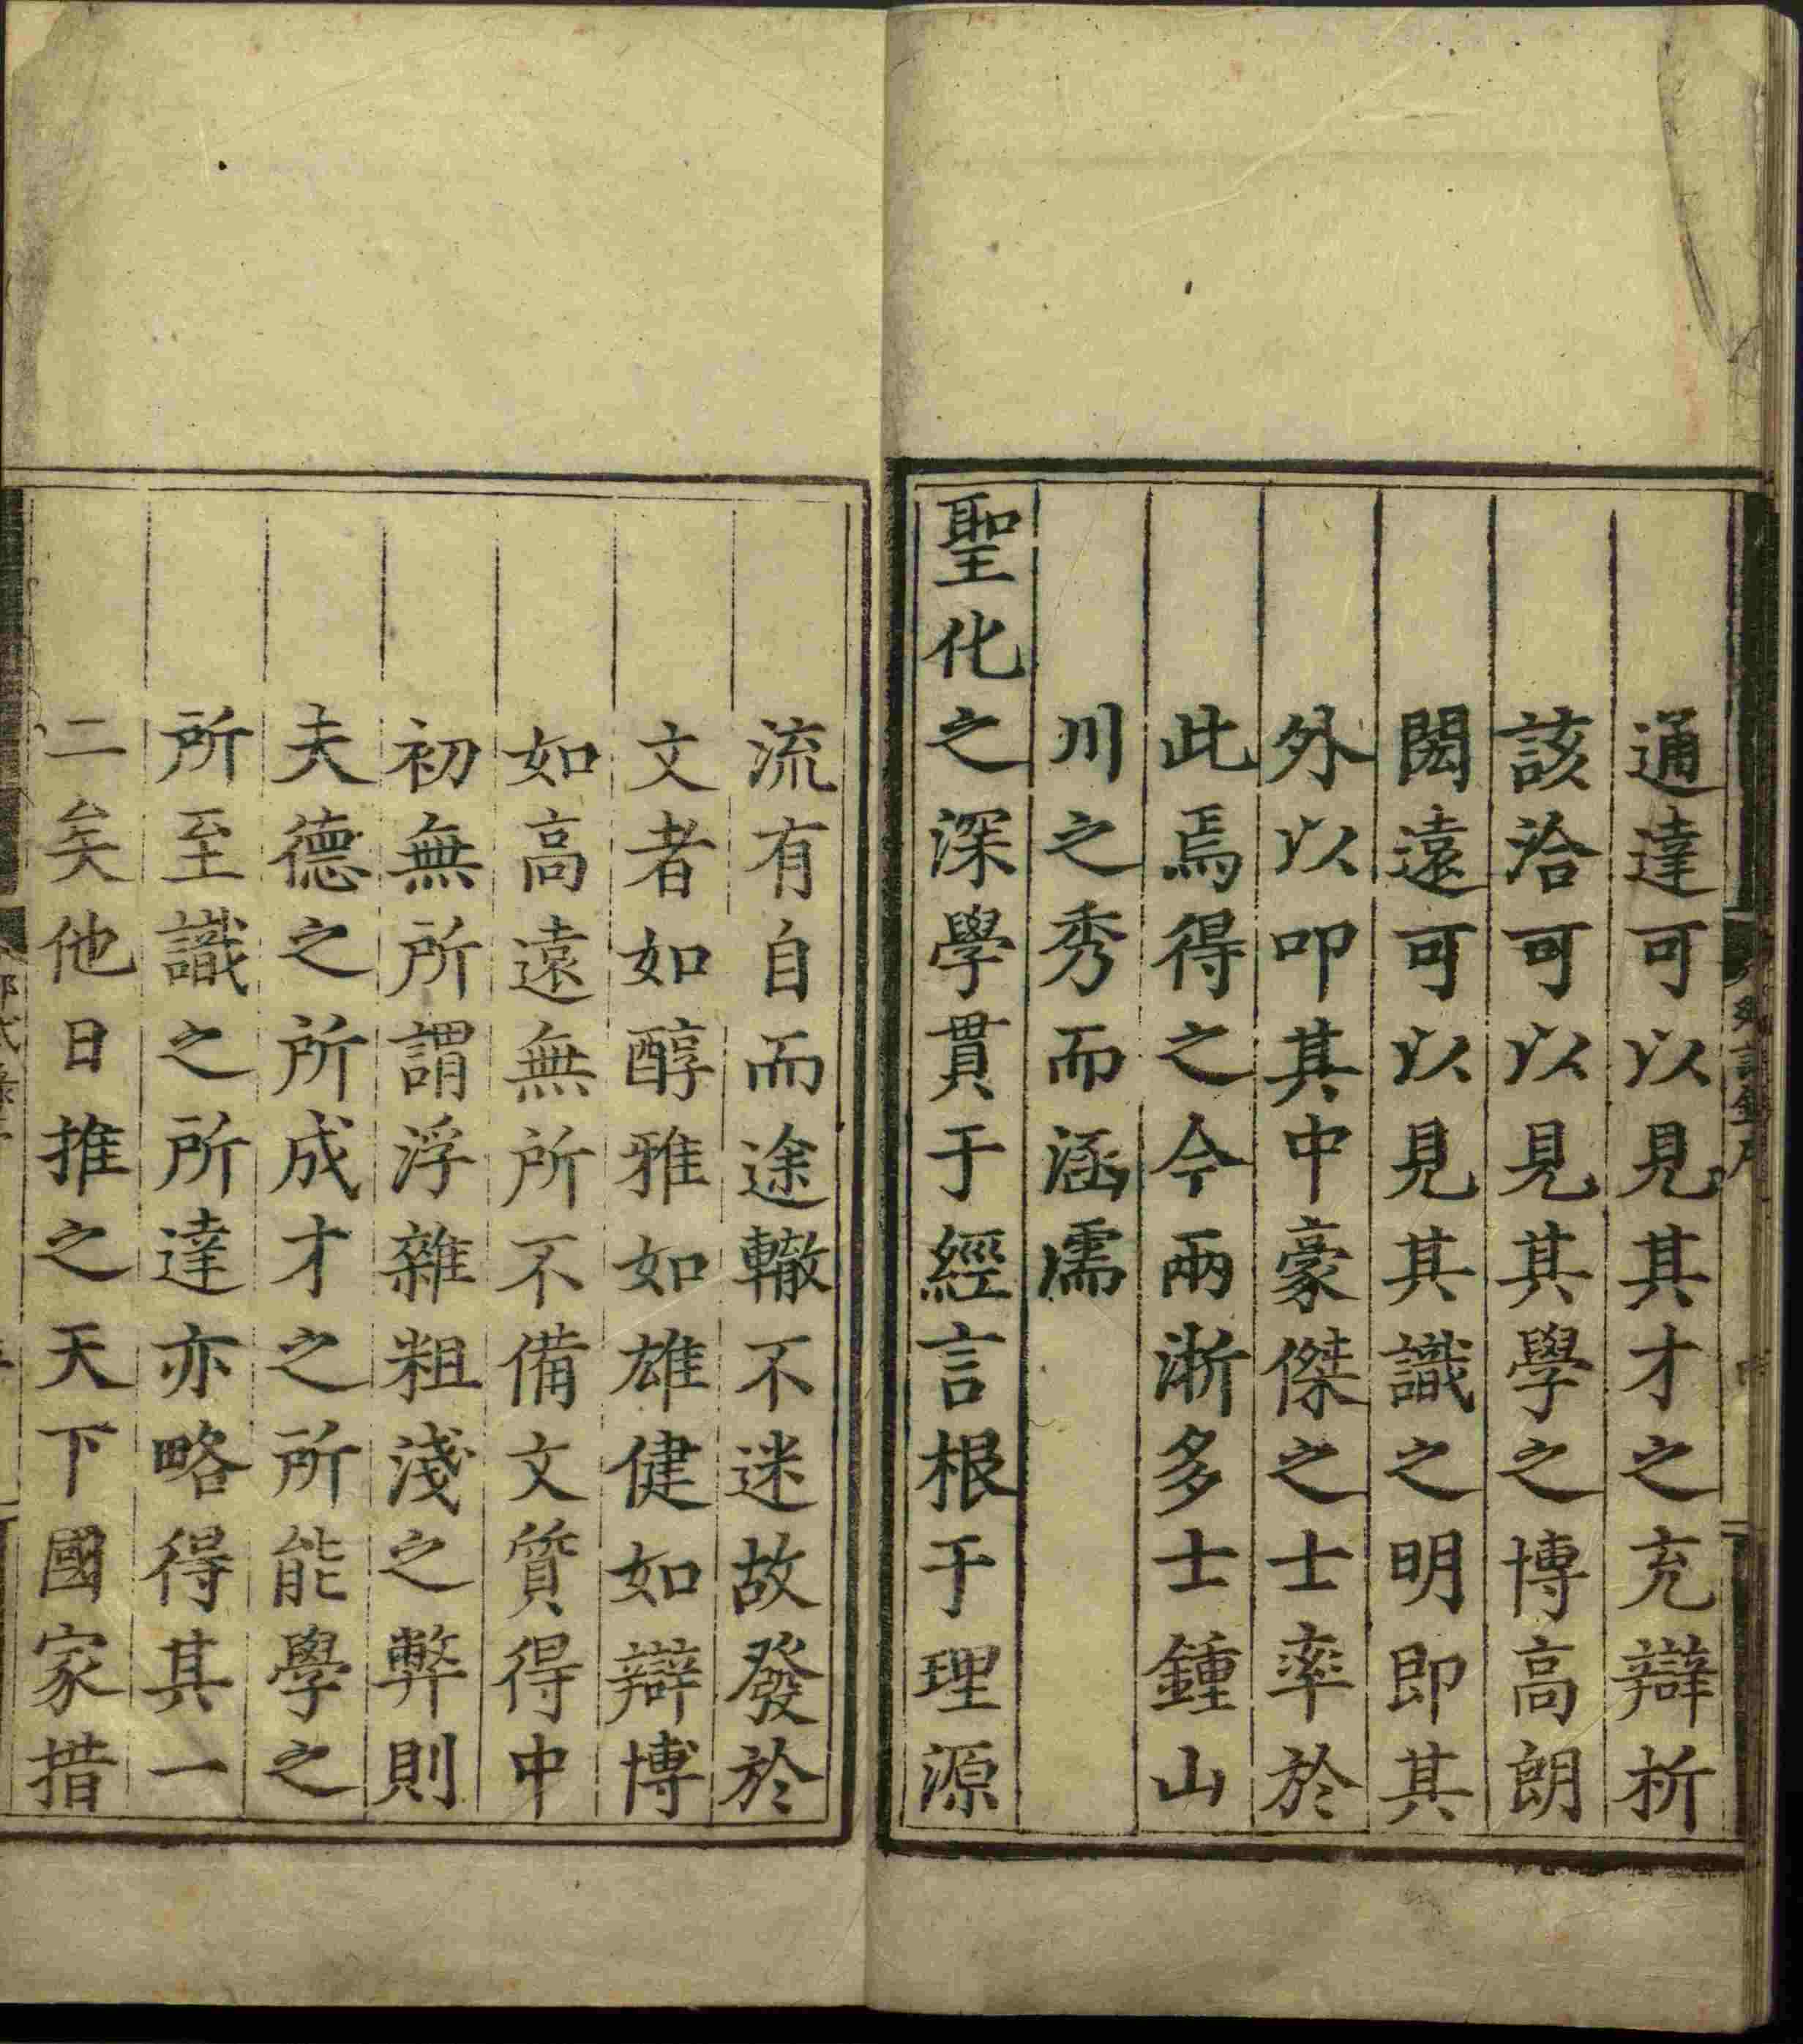 通達可以見其才之充辯析
該洽可以見其學之博高朗
閎遠可以見其識之明即其
外以叩其中豪傑之士率於
此焉得之今兩浙多士鍾山
川之秀而涵濡
聖化之深學貫于經言根于理源
流有自而途轍不迷故發於
文者如醇雅如雄健如辯博
如高遠無所不備文質得中
初無所謂浮雜粗淺之弊則
夫德之所成才之所能學之
所至識之所達亦略得其一
二矣他日推之天下國家措